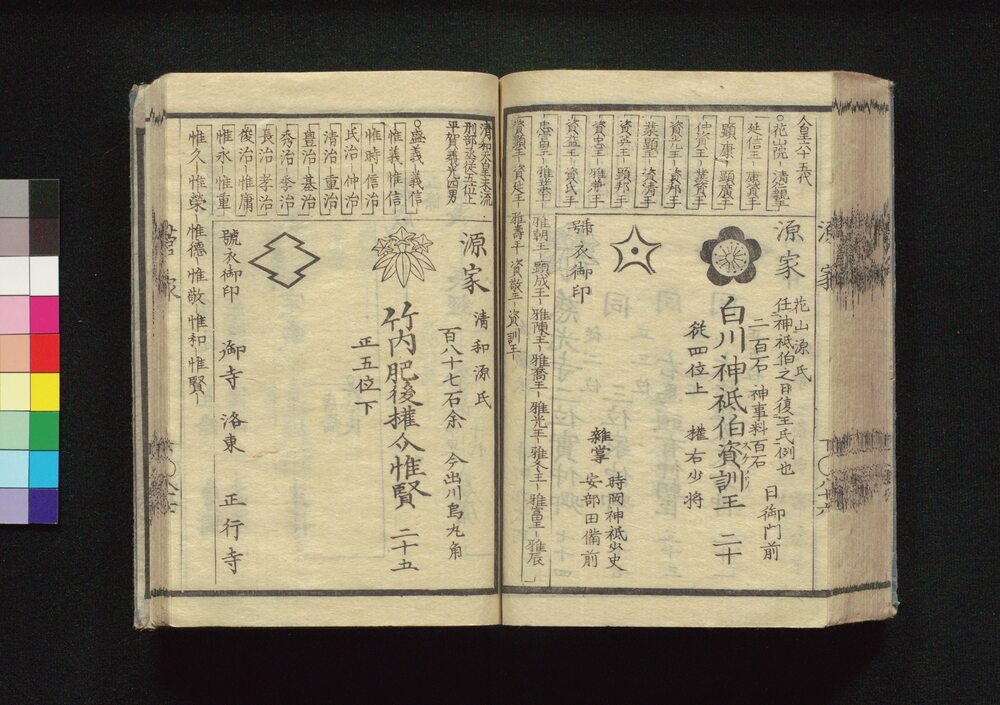 源家
人皇六十五代
○花山院 清仁親王
延信王 康資王
顕康王 顕廣王
仲資王 業資王
資光王 資邦王
業顕王 資清王
資英王 顕邦王
資忠王 雅兼王
資益王 資氏王
忠富王 雅業王
資顯王 資延王 雅壽王 資敬王 資訓王
雅朝王 顕成王 雅陳王 雅喬王 雅光王 雅冬王 雅富王 雅辰
源家
花山源氏
任神祇伯之日復王氏例也
二百石 神事料百石
日御門前
白川神祇伯資訓王 二十
従四位上 權右少将
雜掌
時岡神祇少史
安部田備前
號衣御印
清和天皇末流
刑部丞従五位上
平賀義光四男
○盛義 義信
惟義 惟信
惟時 信治
氏治 仲治
清治 重治
豊治 基治
秀治 季治
長治 孝治
俊治 惟庸
惟永 惟重
惟久 惟榮 惟德 惟敬 惟和 惟賢
源家
清和源氏
百八十七石余 今出川烏丸角
竹内肥後權介惟賢 二十五
正五位下
號衣御印
御寺 洛東 正行寺